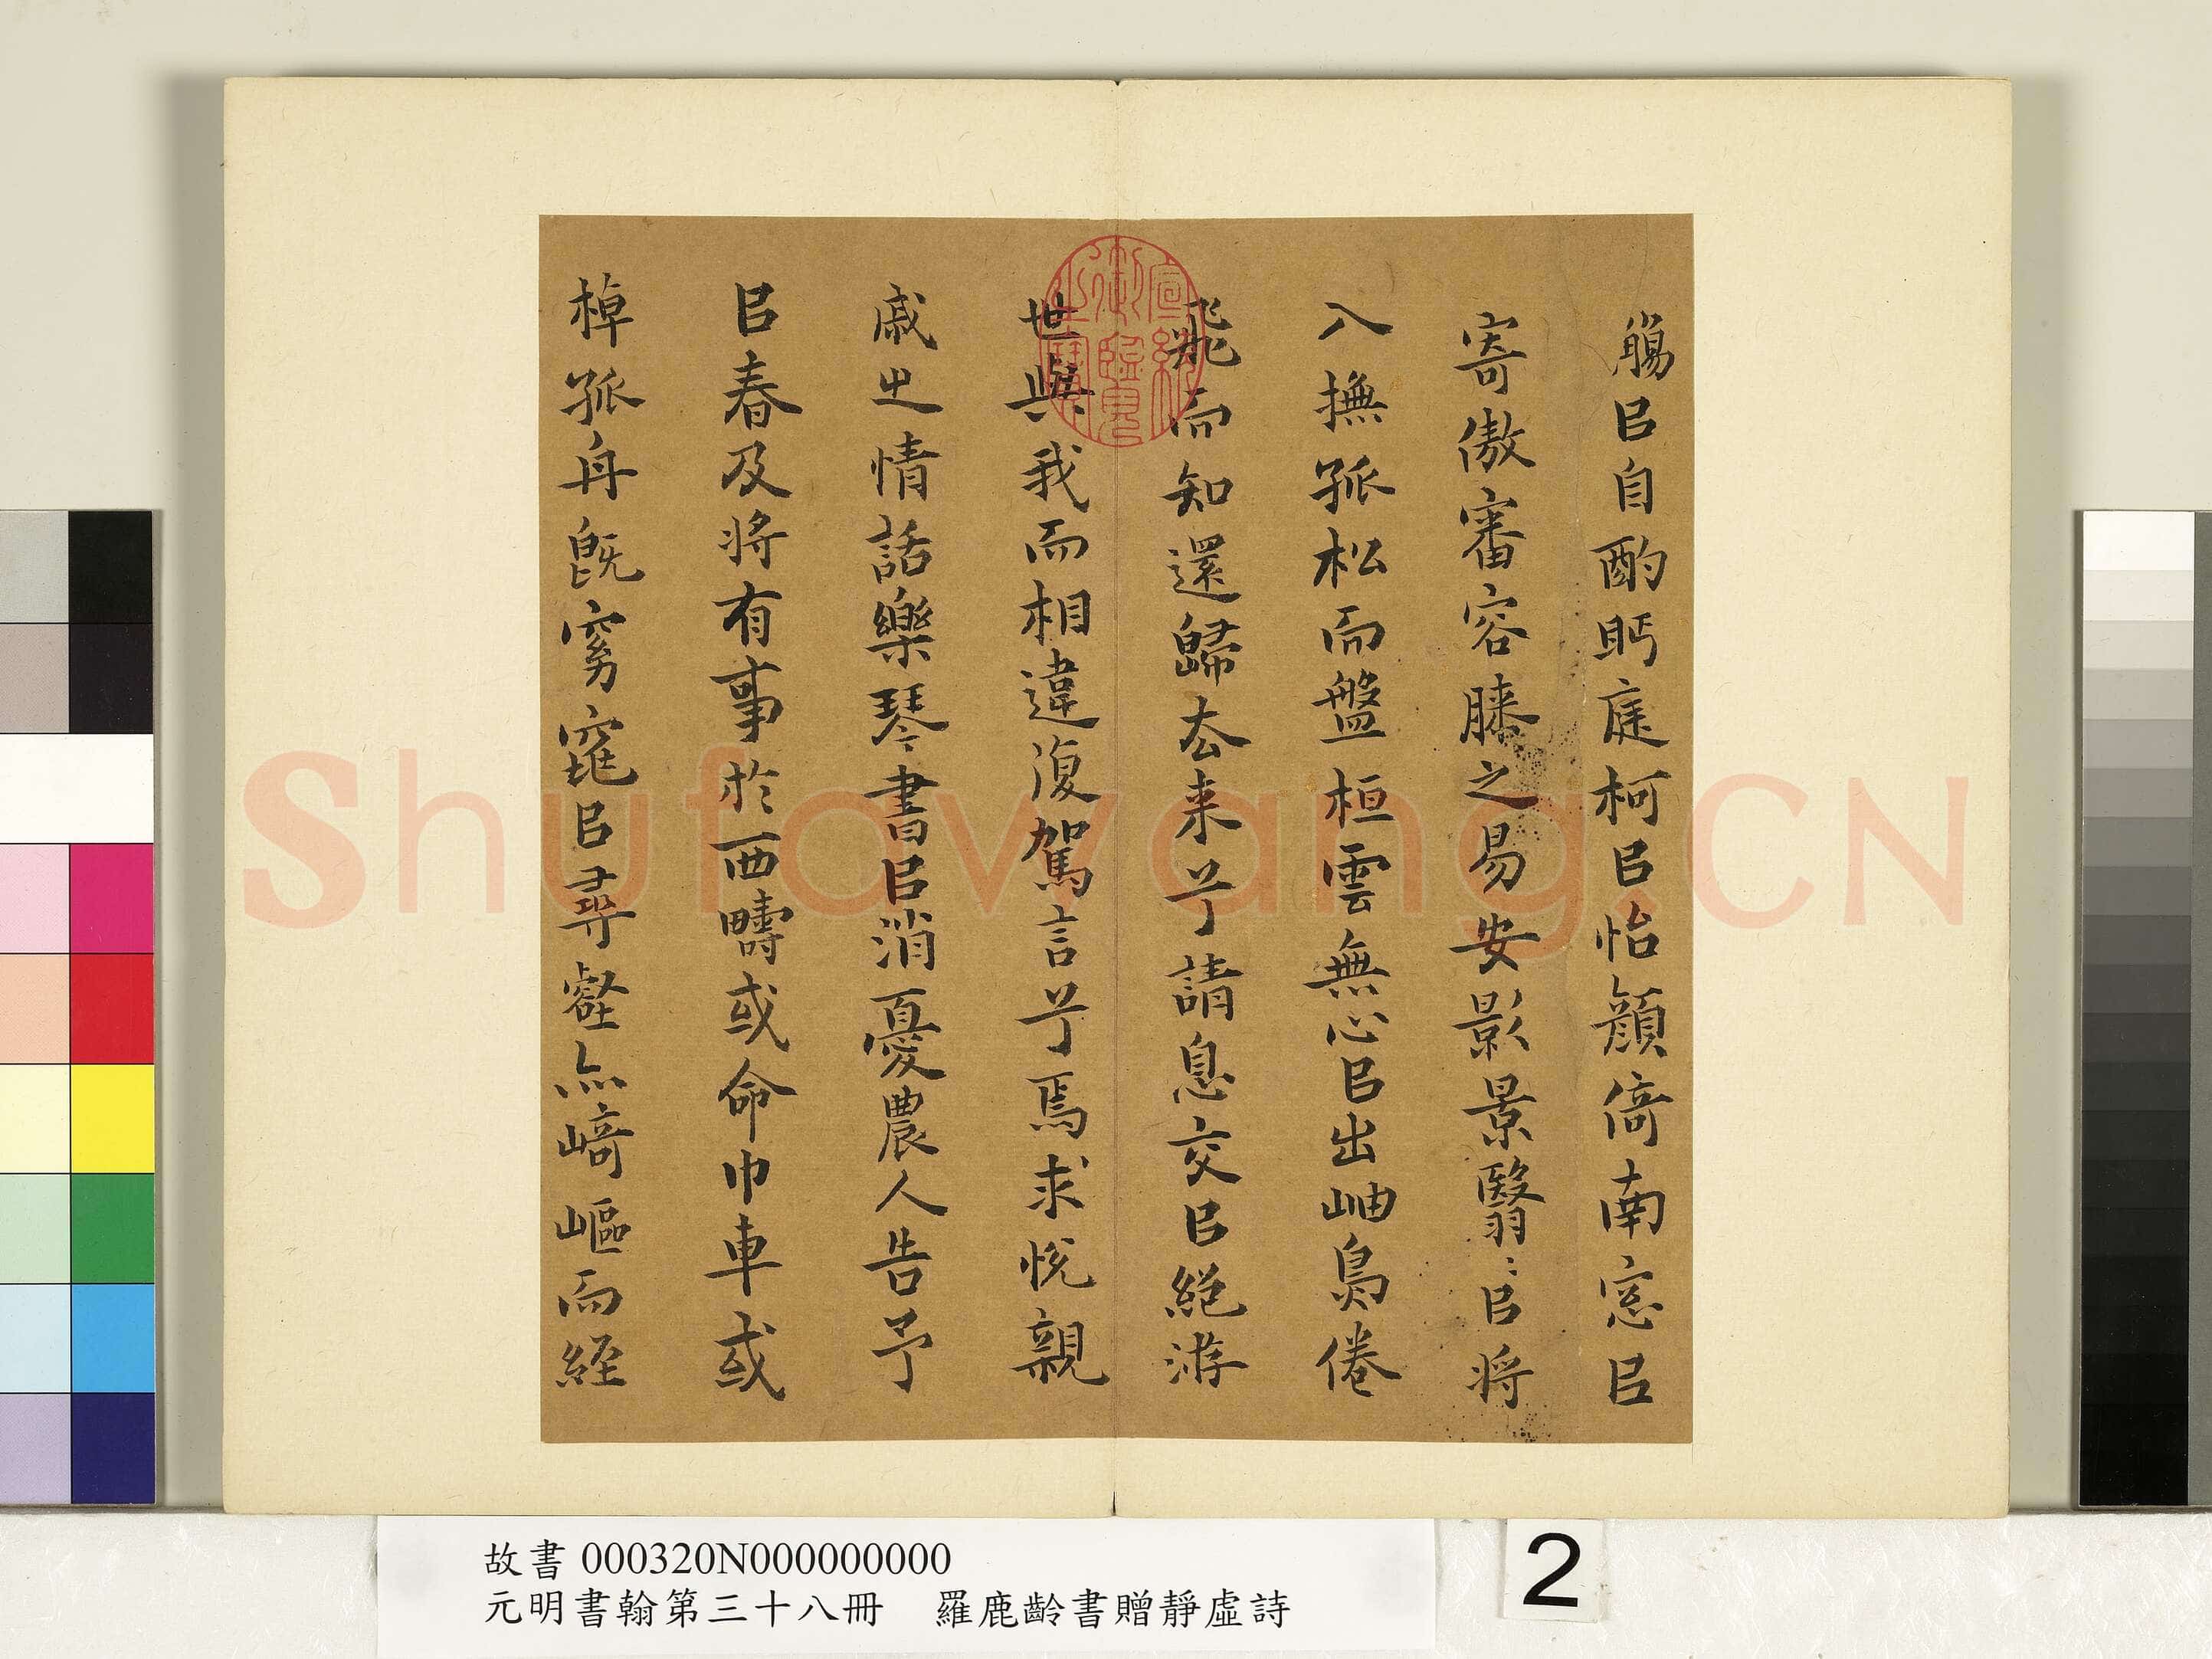 觴㠯自酌眄庭柯㠯怡顔倚南窓㠯
寄傲審容膝之易安影景翳〻㠯將
入撫孤松而盤桓雲無心㠯出岫鳥倦
飛而知還歸去来兮請息交㠯絕游
世與我而相違復駕言兮焉求悅親
戚之情話樂琴書㠯消憂農人告予
㠯春及將有事於西疇或命巾車或
棹孤舟既窈窕㠯尋壑亦崎嶇而経
宣統御覽之寶
Shufawang.CN
故書 000320N000000000
元明書翰第三十八冊 羅鹿齡書贈靜虛詩
2